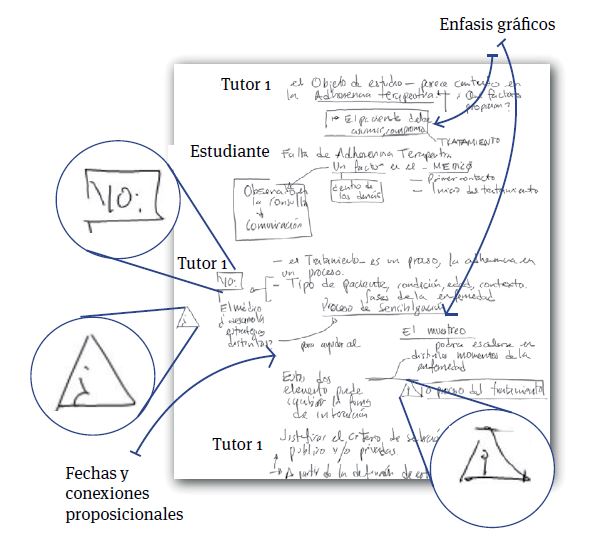 Enfasis gráficos
Tutor 1
el Objeto de estudio – parece centrarse en
la Adherencia terapeutica ¿Que factores
proponen?
El paciente debe
asumir, compromiso
TRATAMIENTO
Estudiante
Falta de Adherencia Terapeutica
Un factor es el – MEDICO
Observado en
la consulta
comunicación
dentro de
los demás
– Primer contacto
– Inicio del tratamiento
YO:
Tutor 1
– el Tratamiento – es un proceso, la adherencia en
un proceso.
YO:
– Tipo de paciente, condición, edad, contexto.
fases de la enfermedad
Proceso de sensibilización
El médico
desarrolla
estrategias
distintas
para ayudar al
El muestreo
podría escalarse en
distintos momentos de la
enfermedad
Estos dos
elementos puede
la forma
de interacción
i
O proceso del tratamiento
Tutor 1
Justificar el criterio de selección
publico y/o privadas
A partir de la definición de
Fechas y
conexiones
proposicionales